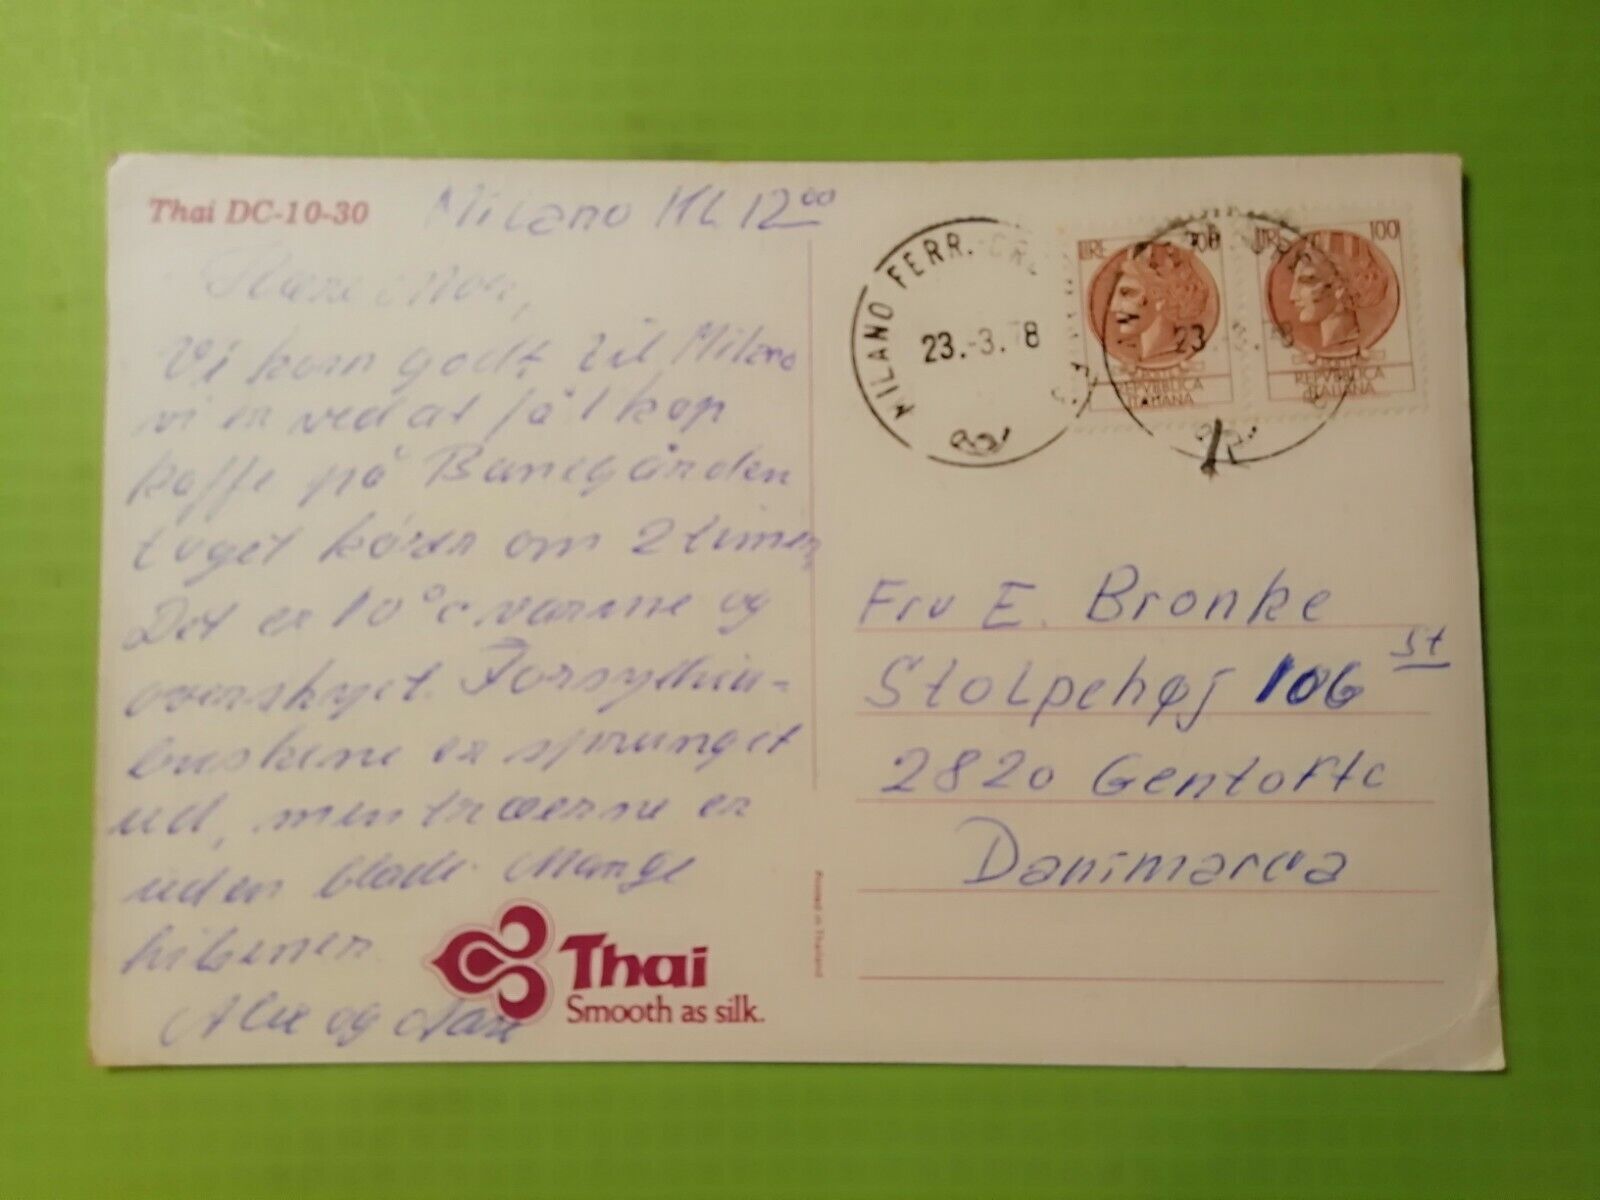 Thai DC-10-30
Milano kl 12 00
Kære Mor,
Vi kom godt til Milano
vi er ved at få 1 kop
kaffe på Banegården
toget kører om 2 timer,
Det er 10°c varme og
overskyet. Forsythia-
buskene er sprunget
ud, men træerne er
uden blade. Mange
hilsener
og
Thai
Smooth as silk.
Printed in Thailand
MILANO FERR.
23.-3.78
LIRE 100
REPVBBLICA
ITALIANA
LIRE 100
REPVBBLICA
ITALIANA
23
Fru E. Bronke
Stolpehøj 106 st
2820 Gentofte
Danimarca